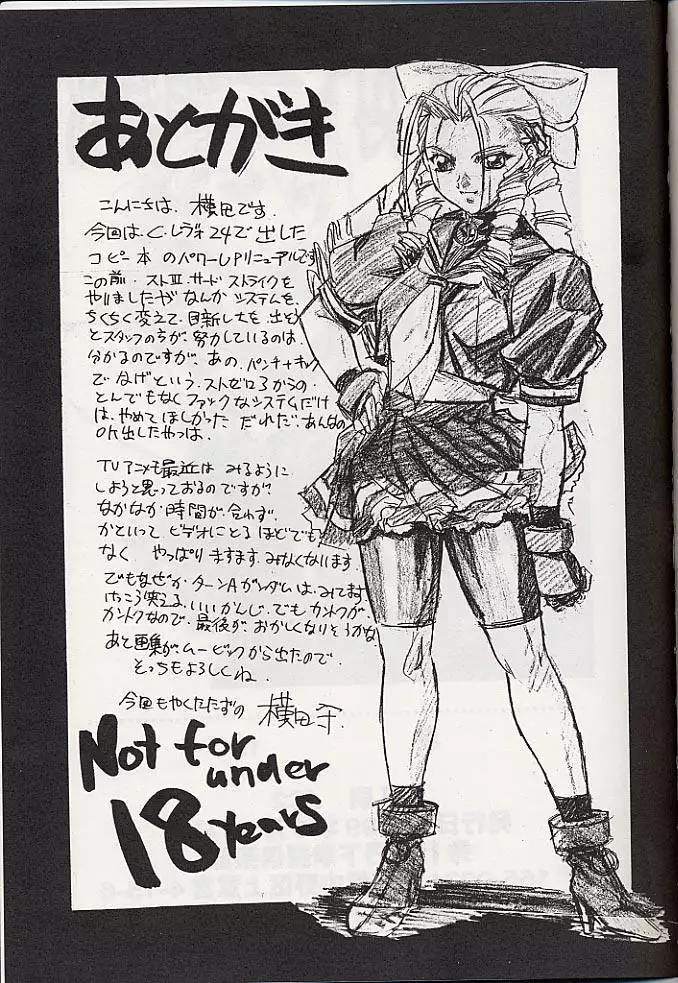 あとがき
こんにちは、横田です。
今回は、C.レヴォ24で出した
コピー本のパワーUPリニューアルです
この前、ストⅢ.サードストライクを
やりましたがなんかシステムを、
ちくちく変えて、目新しさを、出そう
とスタッフの方が、努力しているのは、
分かるのですが、あの、パンチ+キック
でなげという、ストゼロ3からの、
とんでもなくファックなシステムだけ
は、やめてほしかった だれだ、あんなの
OK出したやつは、
TVアニメも最近は みるように
しようと思っておるのですが、
なかなか時間が、合わず、
かといって ビデオにとる ほどでも
なく やっぱり ますます、みなくなります
でもなぜか ターンAガンダムは、みてます
けっこう笑える、いいかんじ、でも カントクが、
カントクなので、最後が、おかしくなりそうかな、
あと画集が、ムービックから出たので、
そっちもよろしくね、
今回もやくたたずの 横田守
Not for
under
18 years